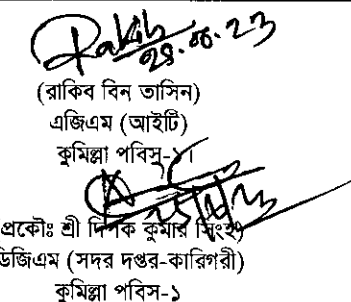 Rakib
(রাকিব বিন তাসিন)
এজিএম (আইটি)
কুমিল্লা পবিস-১।
প্রকৌঃ শ্রী দিপক কুমার সিংহ)
ডজিএম (সদর দপ্তর-কারিগরী)
কুমিল্লা পবিস-১